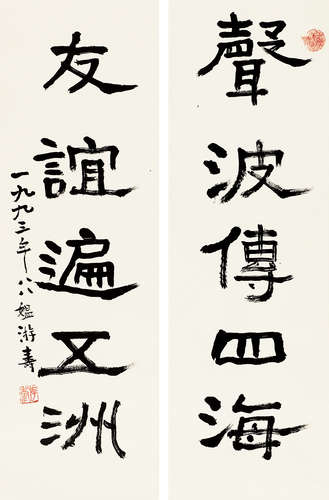 聲波傳四海
友誼遍五洲
一九九三年八八媼游壽